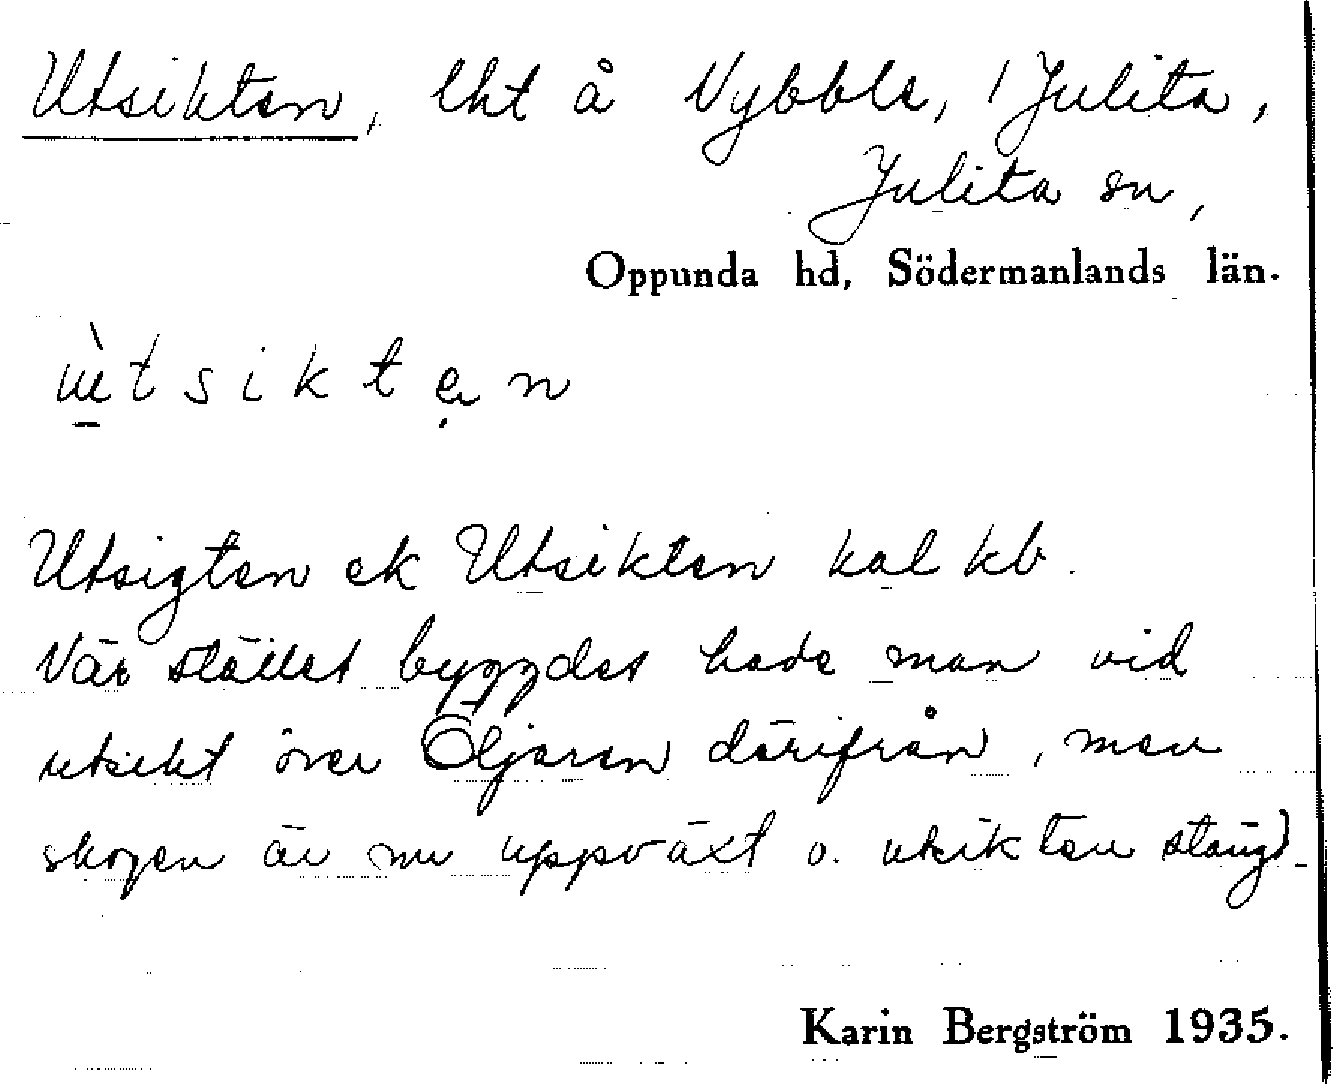 Utsikten, lht å Nybble, 1 Julita,
Julita sn,
Oppunda hd, Södermanlands län.
ùtsiktẹn
Utsigten ek Utsikten kal kb.
När stället byggdes hade man vid
utsikt över Öljaren därifrån, men
skogen är nu uppväxt o. utsikten stängd.
Karin Bergström 1935.